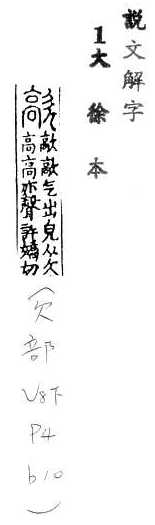 說文解字
1大徐本
歊歊歊气出皃从欠
高高亦聲許嬌切
(欠部 V8下 P4 b10)